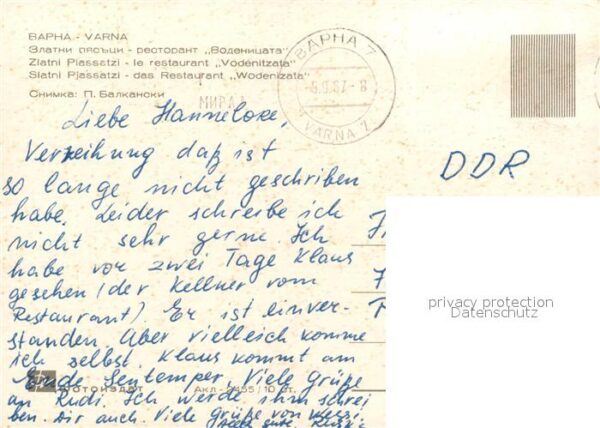 ВАРНА - VARNA
Златни пясъци - ресторант „Воденицата"
Zlatni Piassatzi - le restaurant „Vodénitzata"
Slatni Pjassatzi - das Restaurant „Wodenizata"
Снимка: П. Балкански
ВАРНА 7
VARNA 7
Liebe Hannelore,
Verzeihung daß ist
so lange nicht geschriben
habe. Leider schreibe ich
nicht sehr gerne. Ich
habe vor zwei Tage Klaus
gesehen (der Kellner vom
Restaurant). Er ist einver-
standen. Aber vielleich komme
ich selbst. Klaus kommt am
Ende Sentemper. Viele grüße
an Rudi. Ich werde ihm schrei
ben. Dir auch. Viele grüße von
DDR
privacy protection
Datenschutz